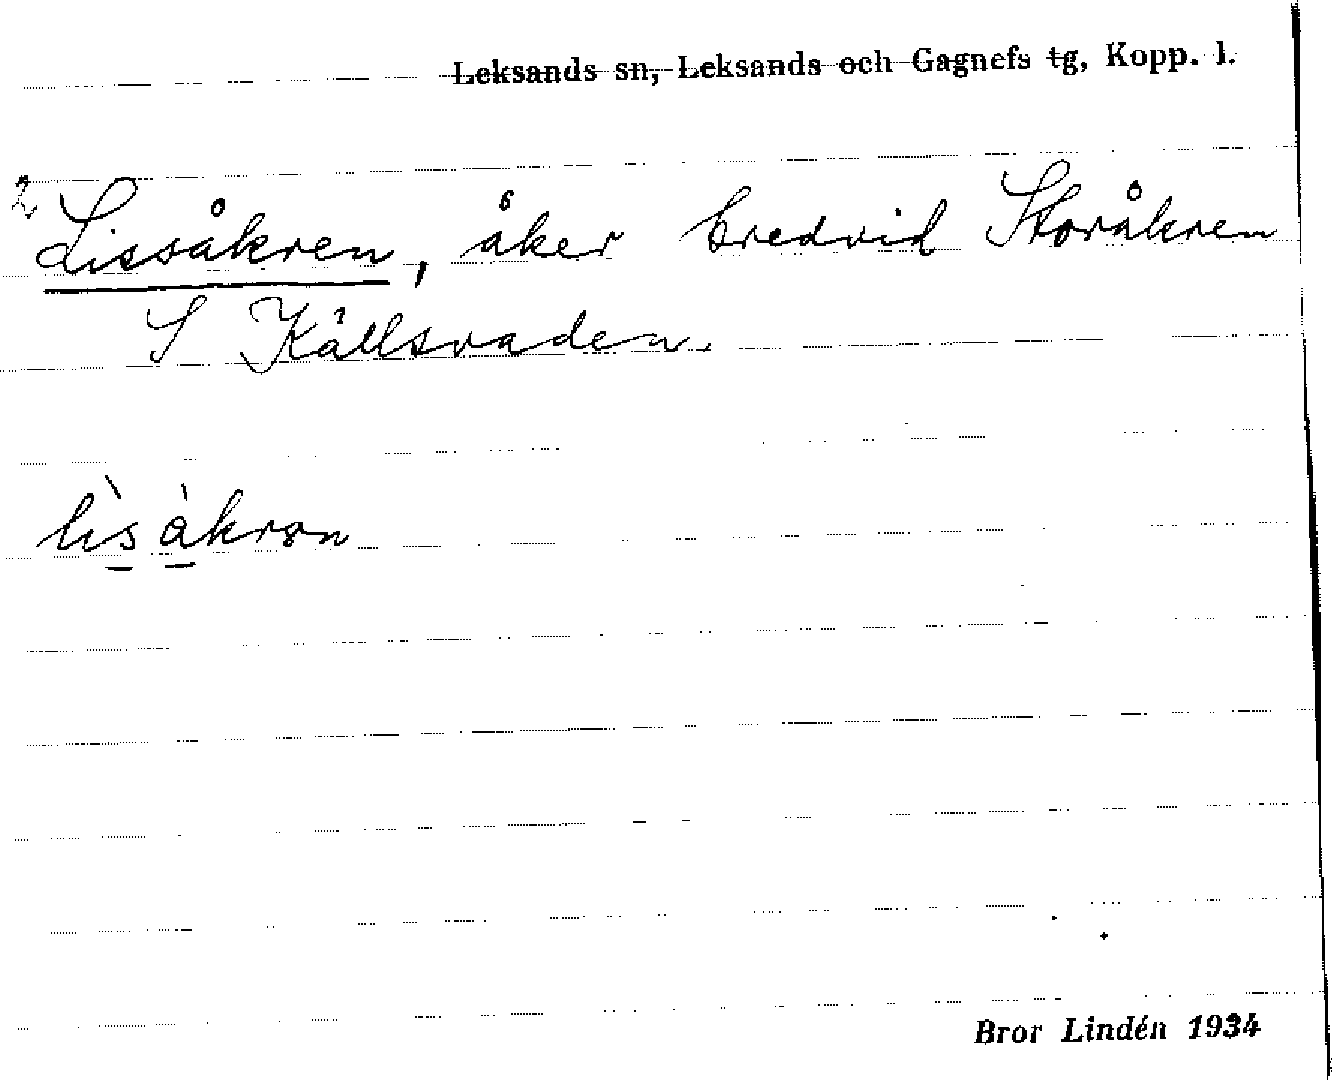 Leksands sn, Leksands och Gagnefs tg, Kopp. l.
2 Lissåkren, åker bredvid Storåkren
S Källsvaden.
lìsàkron
Bror Lindén 1934